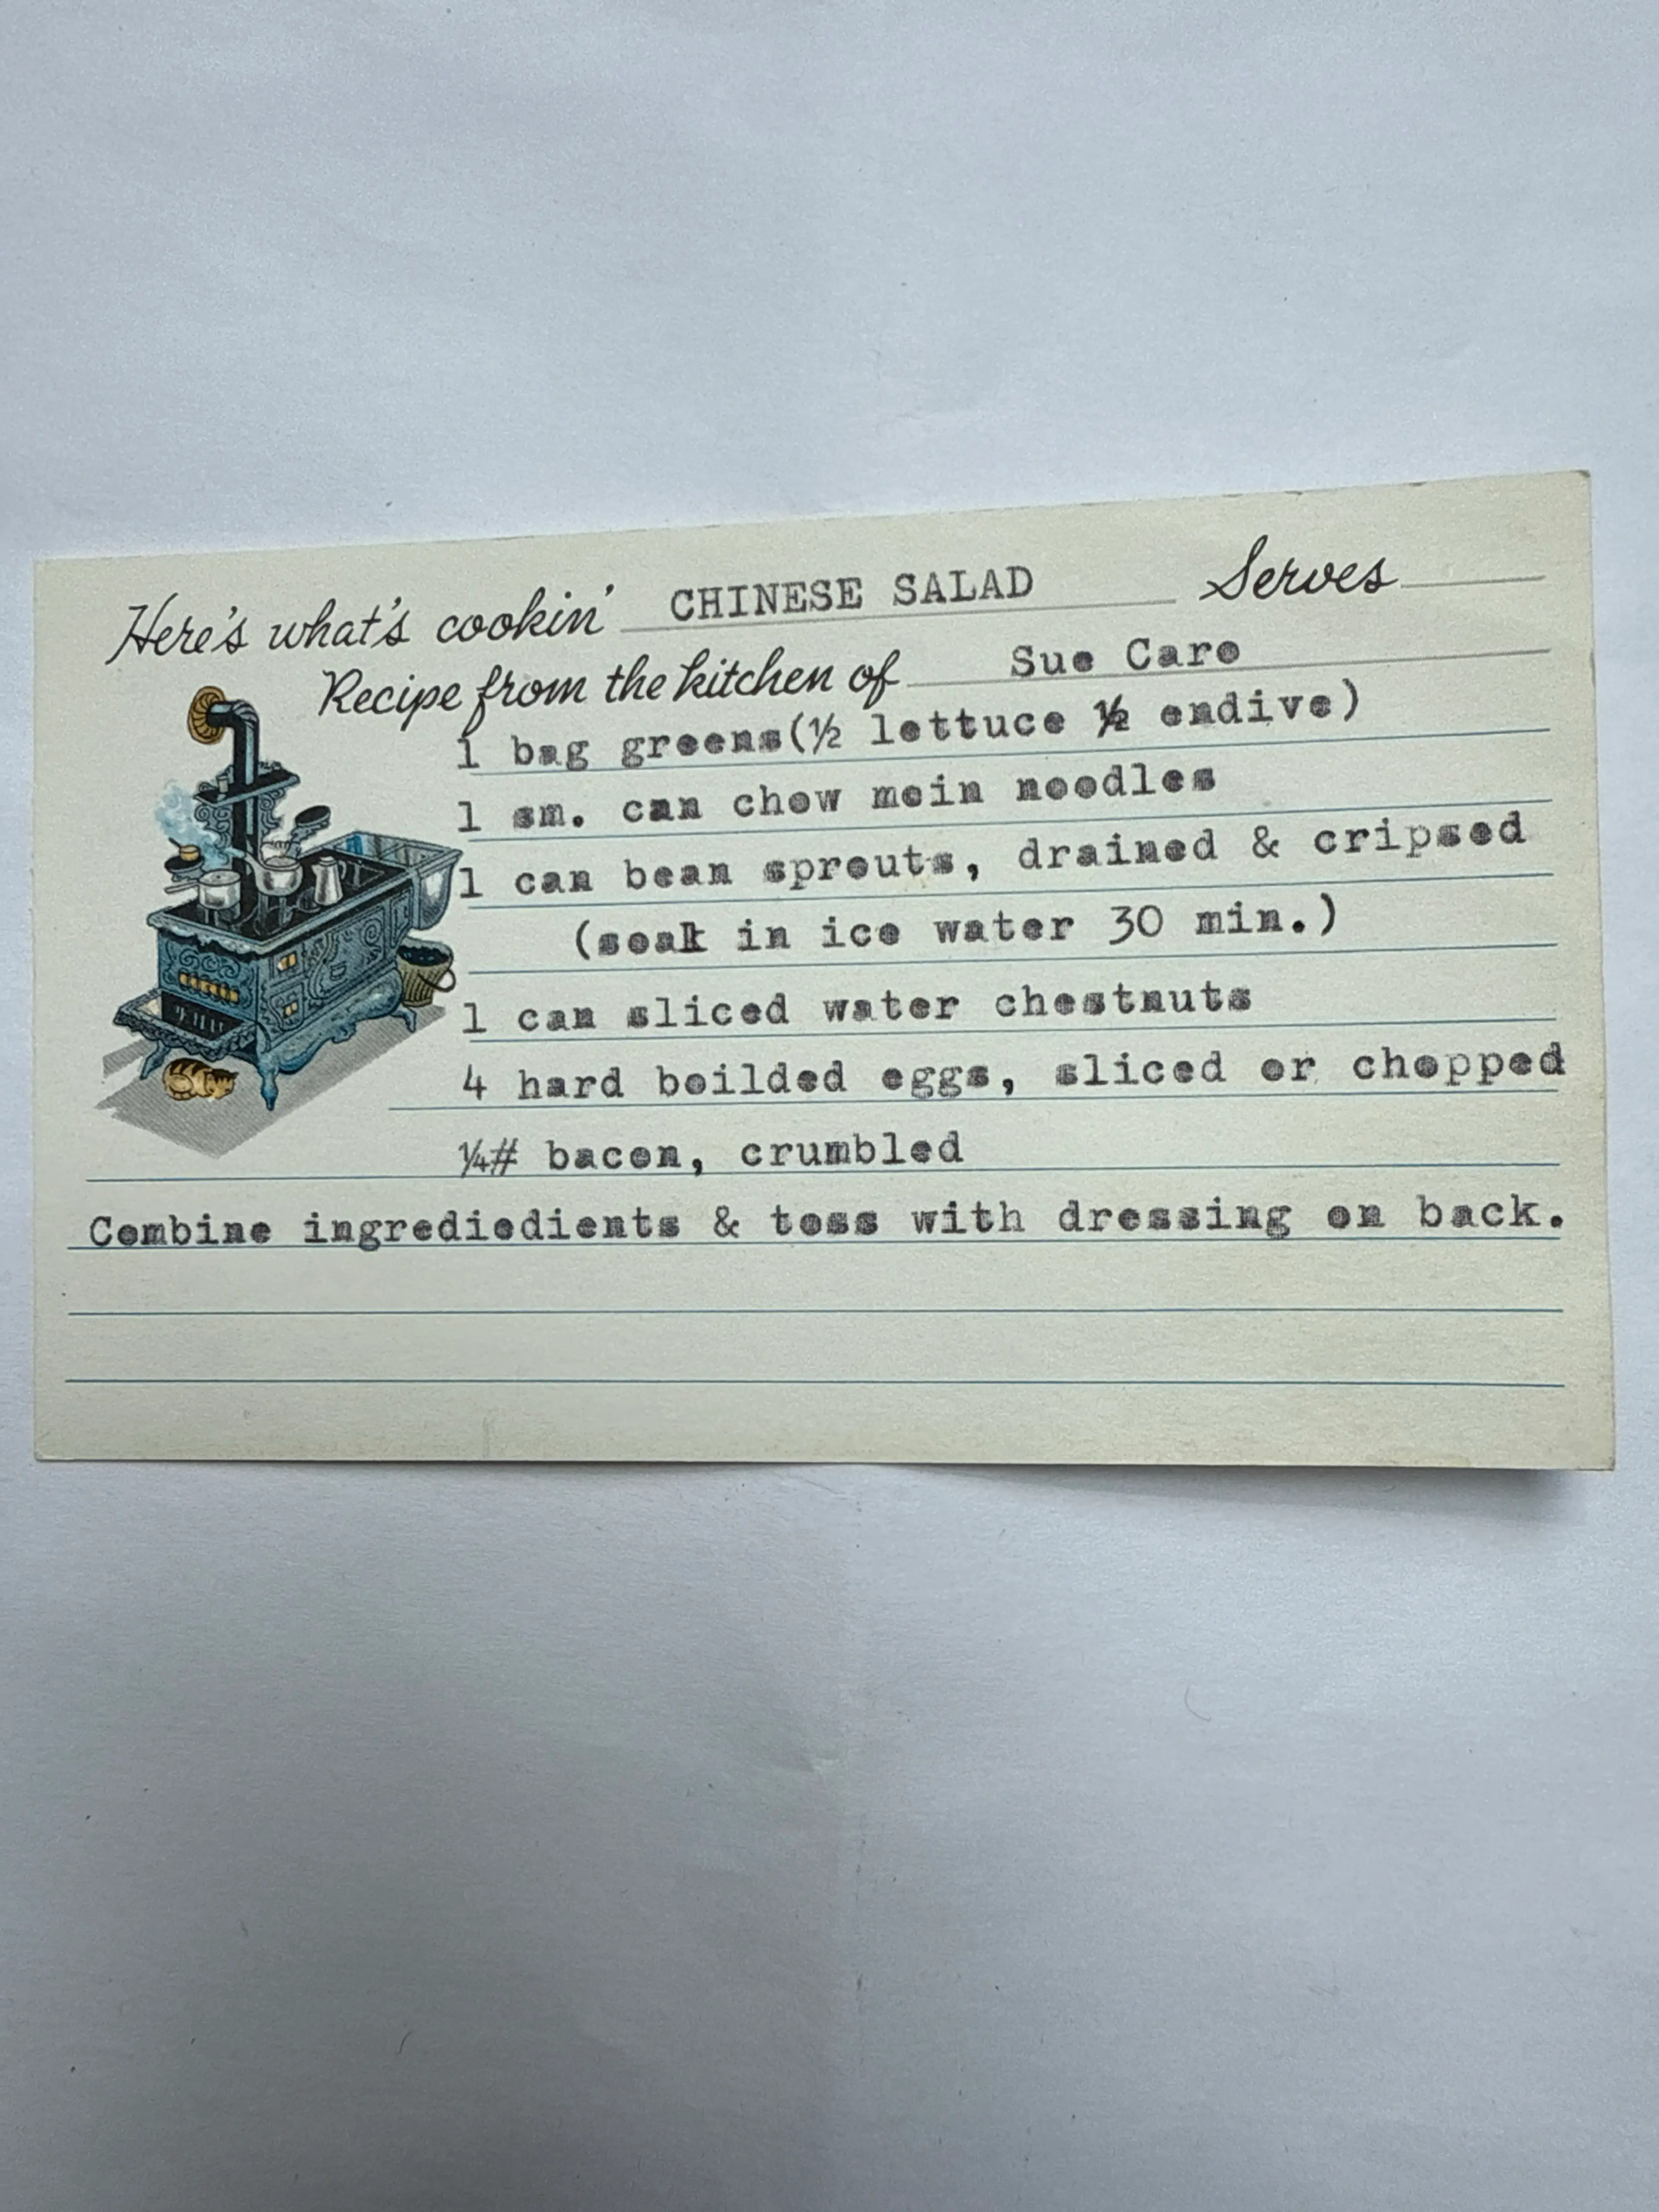 Here's what's cookin' CHINESE SALAD Serves
Recipe from the kitchen of Sue Caro
1 bag greens(½ lettuce ½ endive)
1 sm. can chow mein noodles
1 can bean sprouts, drained & cripsed
(soak in ice water 30 min.)
1 can sliced water chestnuts
4 hard boilded eggs, sliced or chopped
¼# bacon, crumbled
Combine ingrediedients & toss with dressing on back.